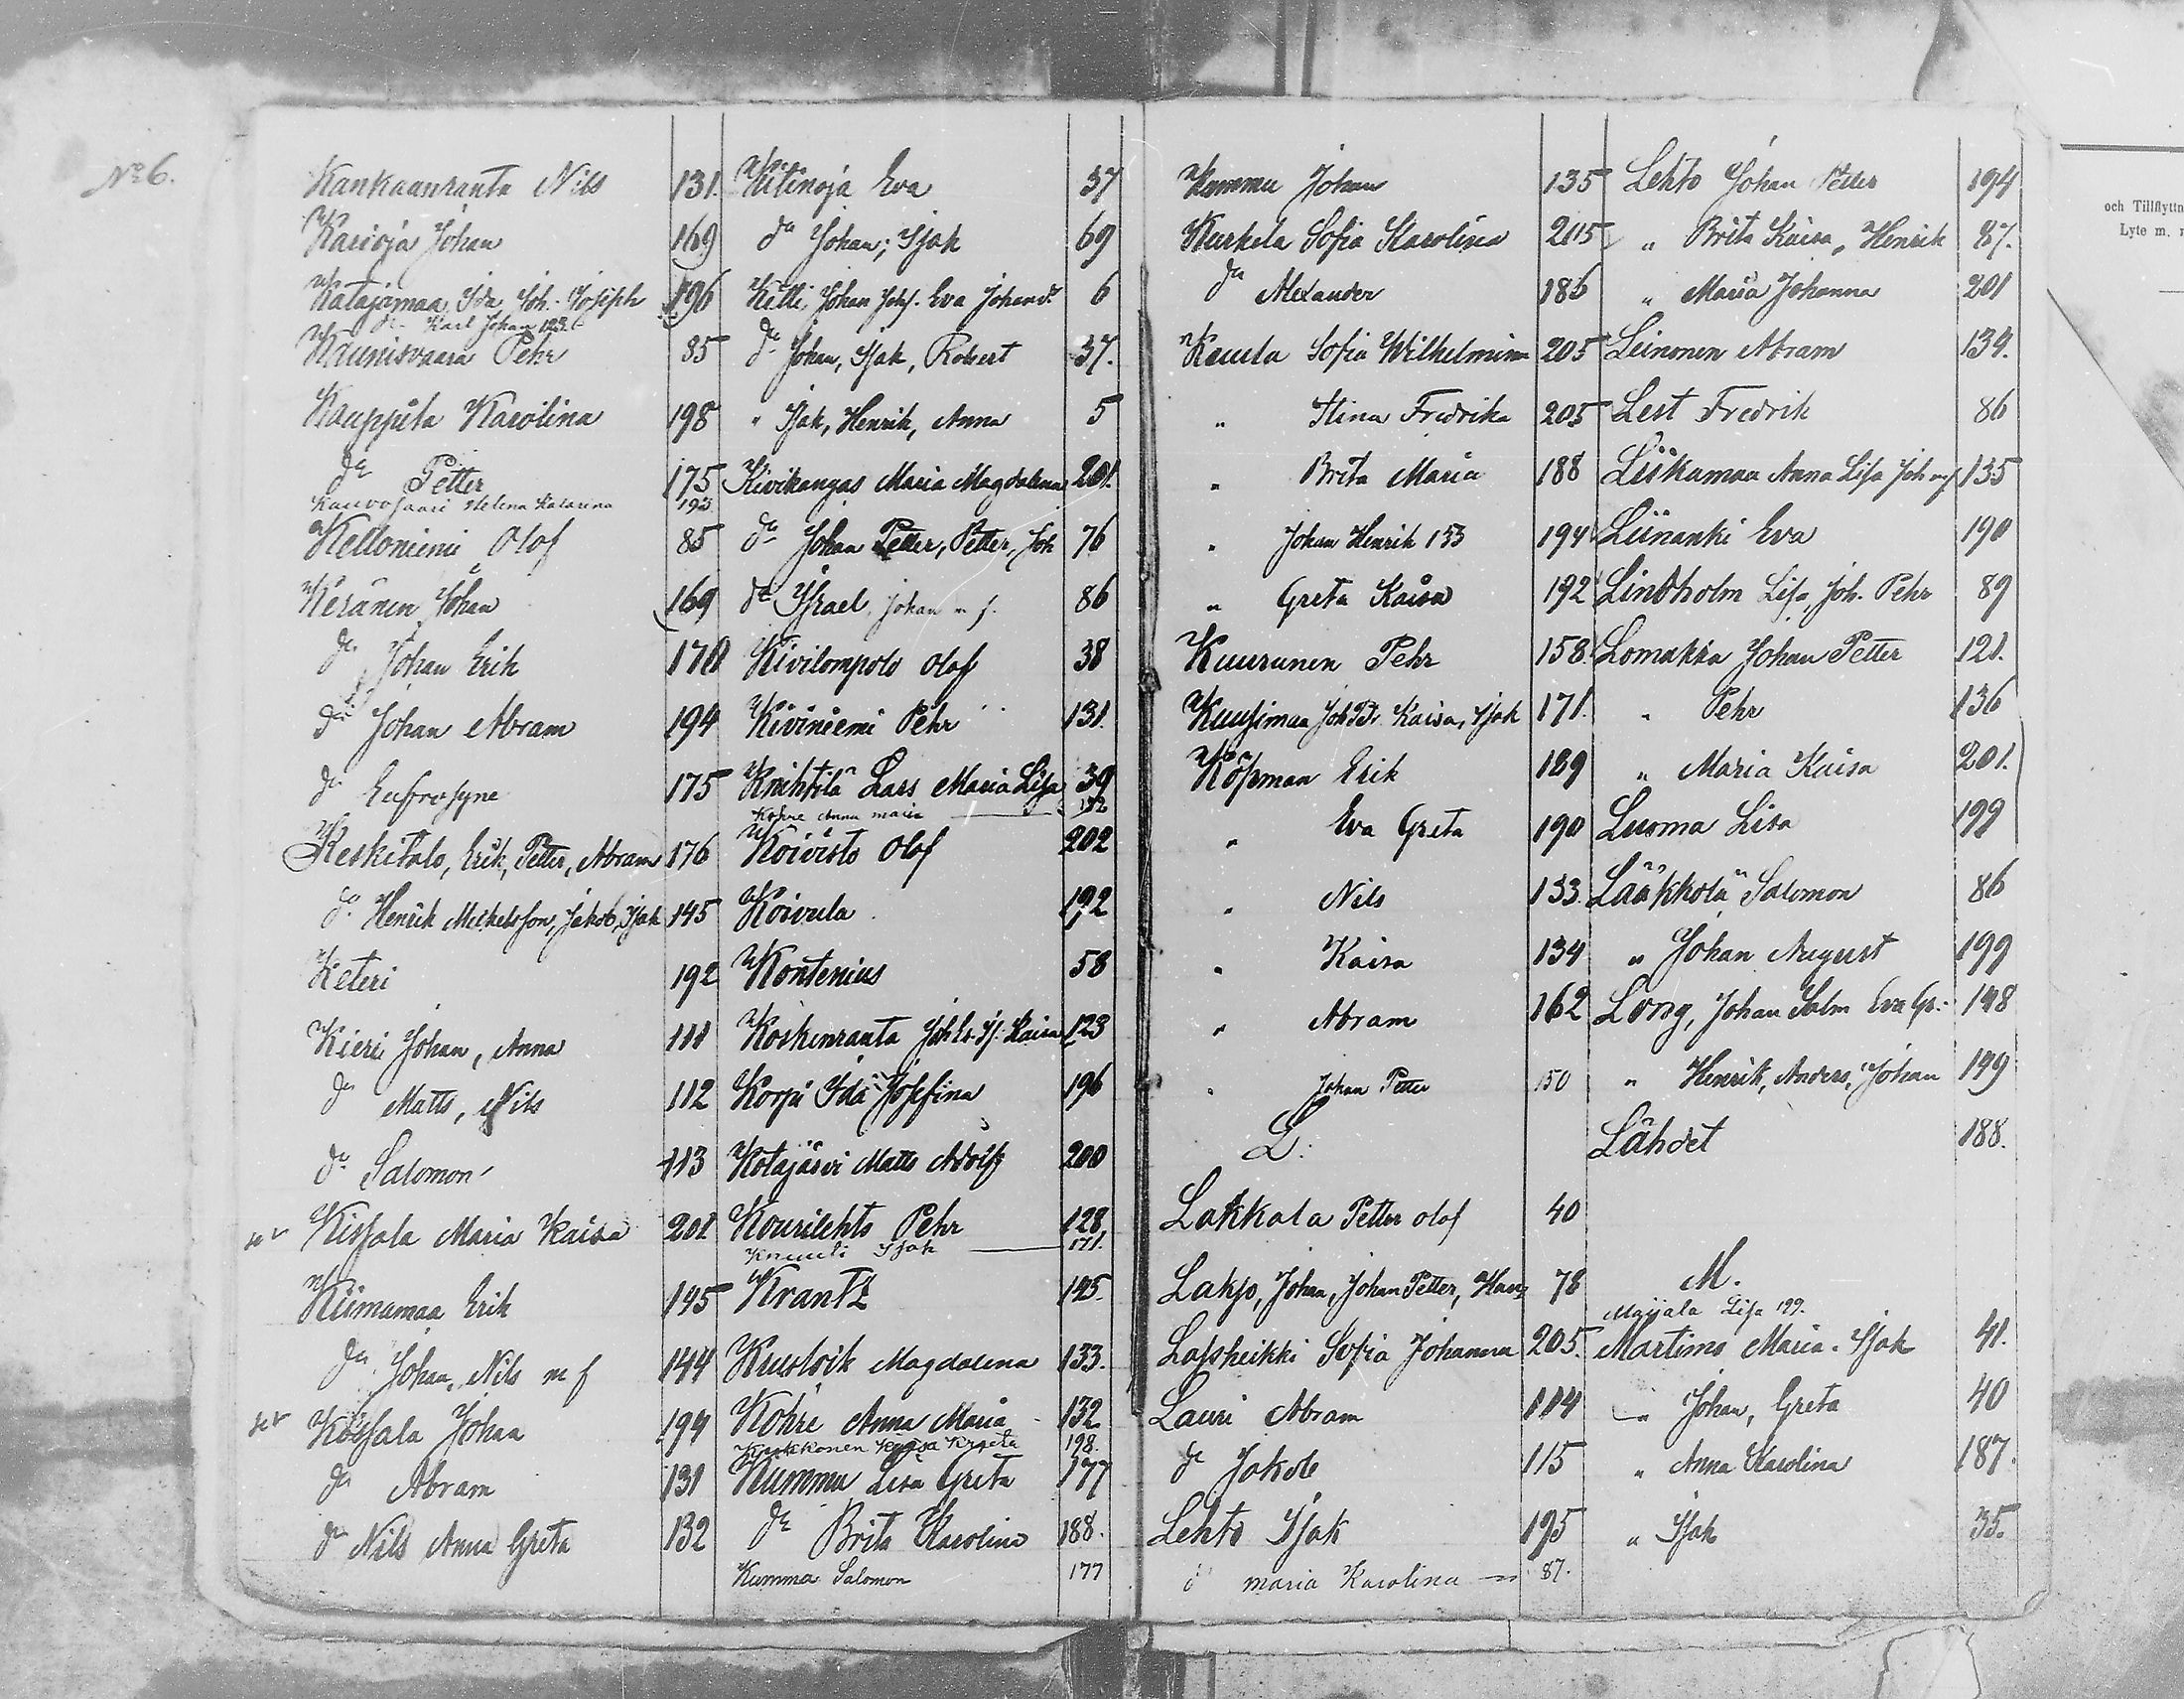 No 6.
Kankaanranta Nils 131.
Karioja Johan 169
Katajamaa, Ida Joh. Joseph 196
do Karl Johan 123
Kaunisvaara Pehr 85
Kauppila Karolina 198
do Petter 175
Helena Katarina 193
Kelloniemi Olof 85
Keränen Johan 169
do Johan Erik 170
do Johan Abram 194
do Eufrosyne 175
Keskitalo, Erik, Petter, Abram 176
do Henrik Mickelsson, Jakob, Isak 145
Keteri 192
Kieri Johan, Anna 111
do Matts, Nils 112
do Salomon 113
Kissala Maria Kaisa 201
Kiimamaa Erik 145
do Johan, Nils m f 144
Johan 194
do Abram 131
do Nils Anna Greta 132
Kiitinoja Eva 37
do Johan; Isak 69
Kitti, Johan Johs. Eva Johansd. 6
do Johan, Isak, Robert 37.
" Isak, Henrik, Anna 5
Kivikangas Maria Magdalena 201.
do Johan Petter, Petter, Joh 76
do Israel, Johan m f. 86
Kivilompolo Olof 38
Kiviniemi Pehr 131.
Knihtilä Lars Maria Lisa 39
Köhre Anna Maria 132
Koivisto Olof 202
Koivula 192
Kontenius 58
Koskenranta Joh Er. Is. Kaisa 123
Korpi Ida Josefina 196
Kotajärvi Matts Adolf 200
Kourilehto Pehr 128.
Knuuti Isak 171.
Krantz 145
Magdalena 133.
Köhre Anna Maria 132
Kaisa 198.
Kummu Lisa Greta 177
do Brita Karolina 188.
Kummu Salomon 177
Kummu Johan 135
Kurkela Sofia Karolina 205
do Alexander 186
Sofia Wilhelmina 205
" Stina Fredrika 205
" Brita Maria 188
" Johan Henrik 133 194
" Greta Kaisa 192
Kuurunen Pehr 158.
Kuusimaa Joh Pr. Kaisa, Isak 171.
Erik 189
" Eva Greta 190
" Nils 133.
" Kaisa 134
" Abram 162
" Johan Petter 150
L.
Lakkala Petter Olof 40
Lakso, Johan, Johan Petter, Hans 78
Lassheikki Sofia Johanna 205.
Lauri Abram 114
do Jakob 115
Lehto Isak 195
do Maria Karolina 87.
Lehto Johan Petter 194
" Brita Kaisa, Henrik 87.
" Maria Johanna 201
Leinonen Abram 134.
Lest Fredrik 86
Liikamaa Anna Lisa Joh m f 135
Liinanki Eva 190
Lindholm Lisa, Joh. Pehr 89
Lomakka Johan Petter 121.
" Pehr 136
" Maria Kaisa 201.
Luoma Lisa 199
Lääkkölä Salomon 86
" Johan August 199
Long, Johan Salm Eva Gr. 148
" Henrik, Anders, Johan 149
Lähdet 188.
M.
Maijala Lisa 199.
Martimo Maria. Isak 41.
" Johan, Greta 40
" Anna Karolina 187.
" Isak 35.
och Tillflyttn
Lyte m.